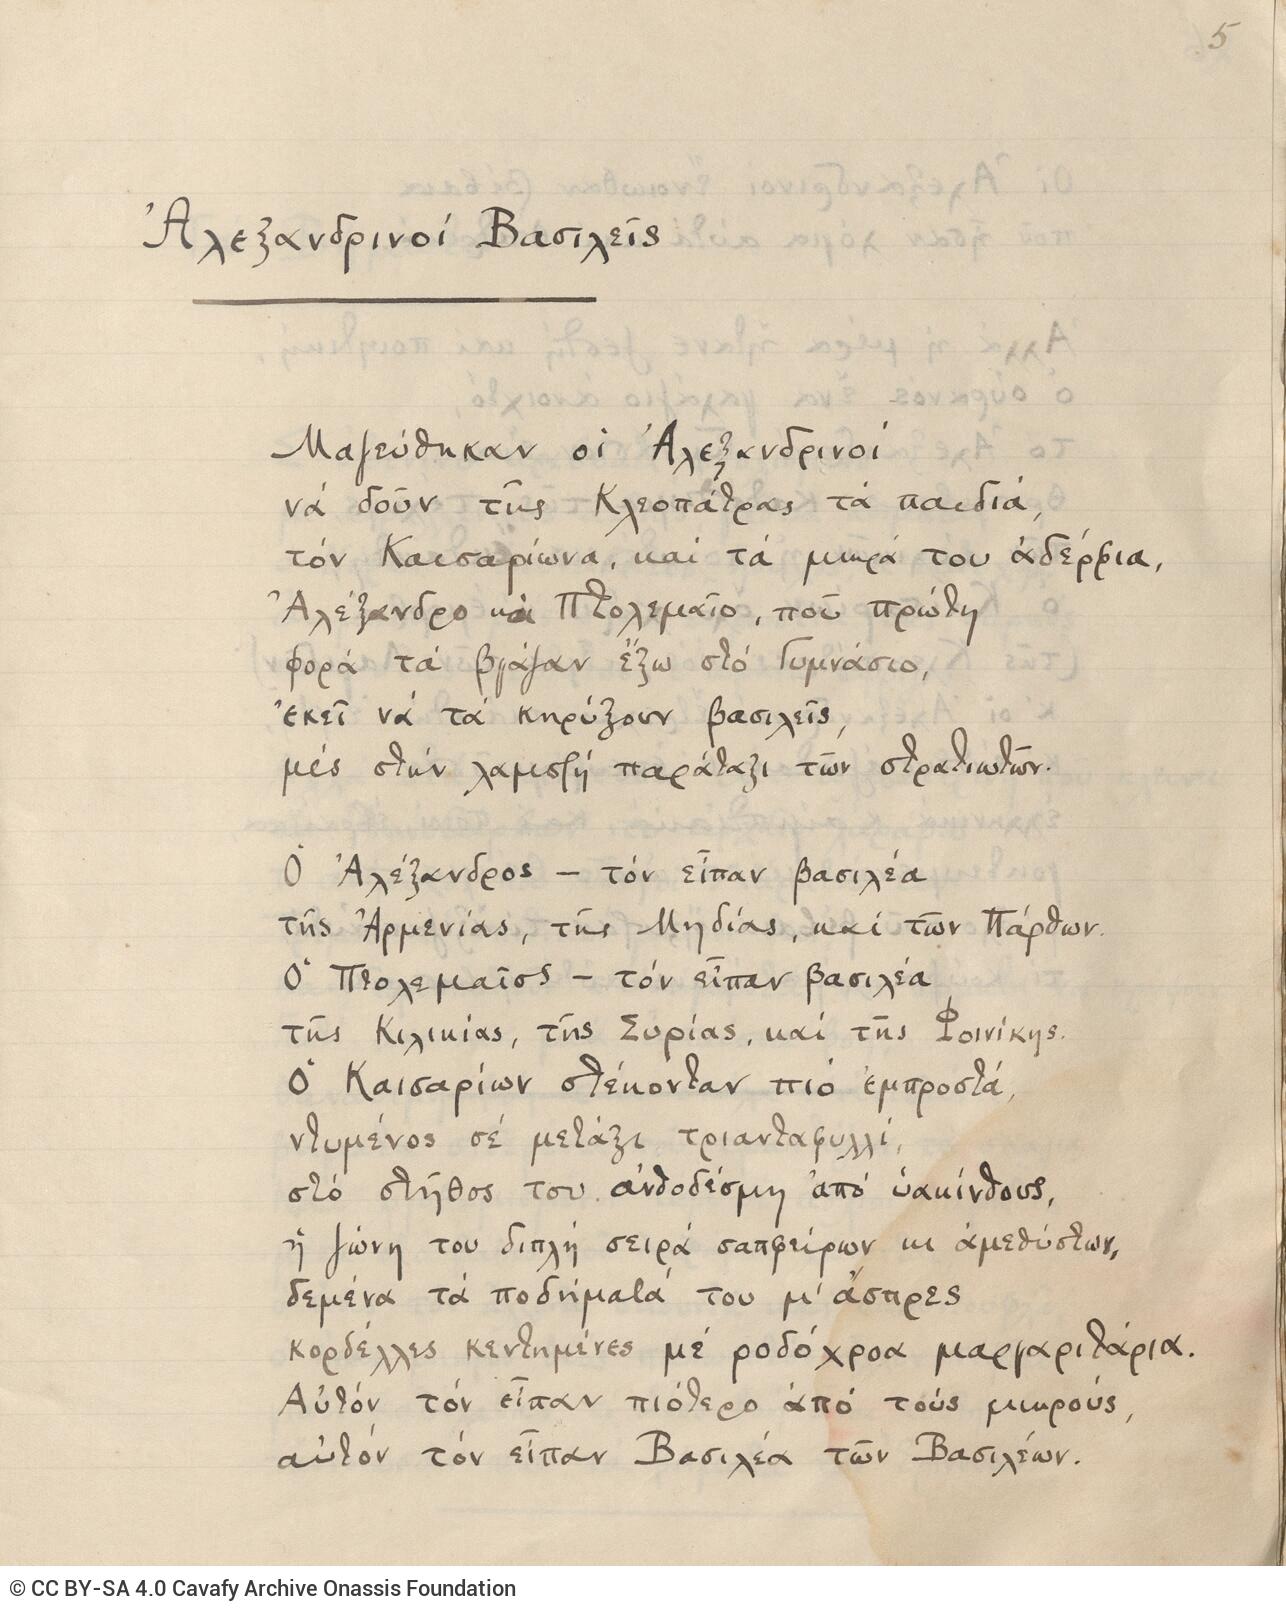 5
Ἀλεξανδρινοί Βασιλεῖς
Μαζεύθηκαν οἱ Ἀλεξανδρινοί
νά δοῦν τῆς Κλεοπάτρας τά παιδιά,
τόν Καισαρίωνα, καί τά μικρά του ἀδέρφια,
Ἀλέξανδρο καί Πτολεμαῖο, πού πρώτη
φορά τά βγάζαν ἔξω στό Γυμνάσιο,
ἐκεῖ νά τά κηρύξουν βασιλεῖς,
μές στήν λαμπρή παράταξι τῶν στρατιωτῶν.
Ὁ Ἀλέξανδρος — τόν εἶπαν βασιλέα
τῆς Ἀρμενίας, τῆς Μηδίας, καί τῶν Πάρθων.
Ὁ Πτολεμαῖος — τόν εἶπαν βασιλέα
τῆς Κιλικίας, τῆς Συρίας, καί τῆς Φοινίκης.
Ὁ Καισαρίων στέκονταν πιό ἐμπροστά,
ντυμένος σέ μετάξι τριανταφυλλί,
στό στῆθος του ἀνθοδέσμη ἀπό ὑακίνθους,
ἡ ζώνη του διπλή σειρά σαπφείρων κι ἀμεθύστων,
δεμένα τά ποδήματά του μ' ἄσπρες
κορδέλλες κεντημένες μέ ροδόχροα μαργαριτάρια.
Αὐτόν τόν εἶπαν πιότερο ἀπό τούς μικρούς,
αὐτόν τόν εἶπαν Βασιλέα τῶν Βασιλέων.
© CC BY-SA 4.0 Cavafy Archive Onassis Foundation